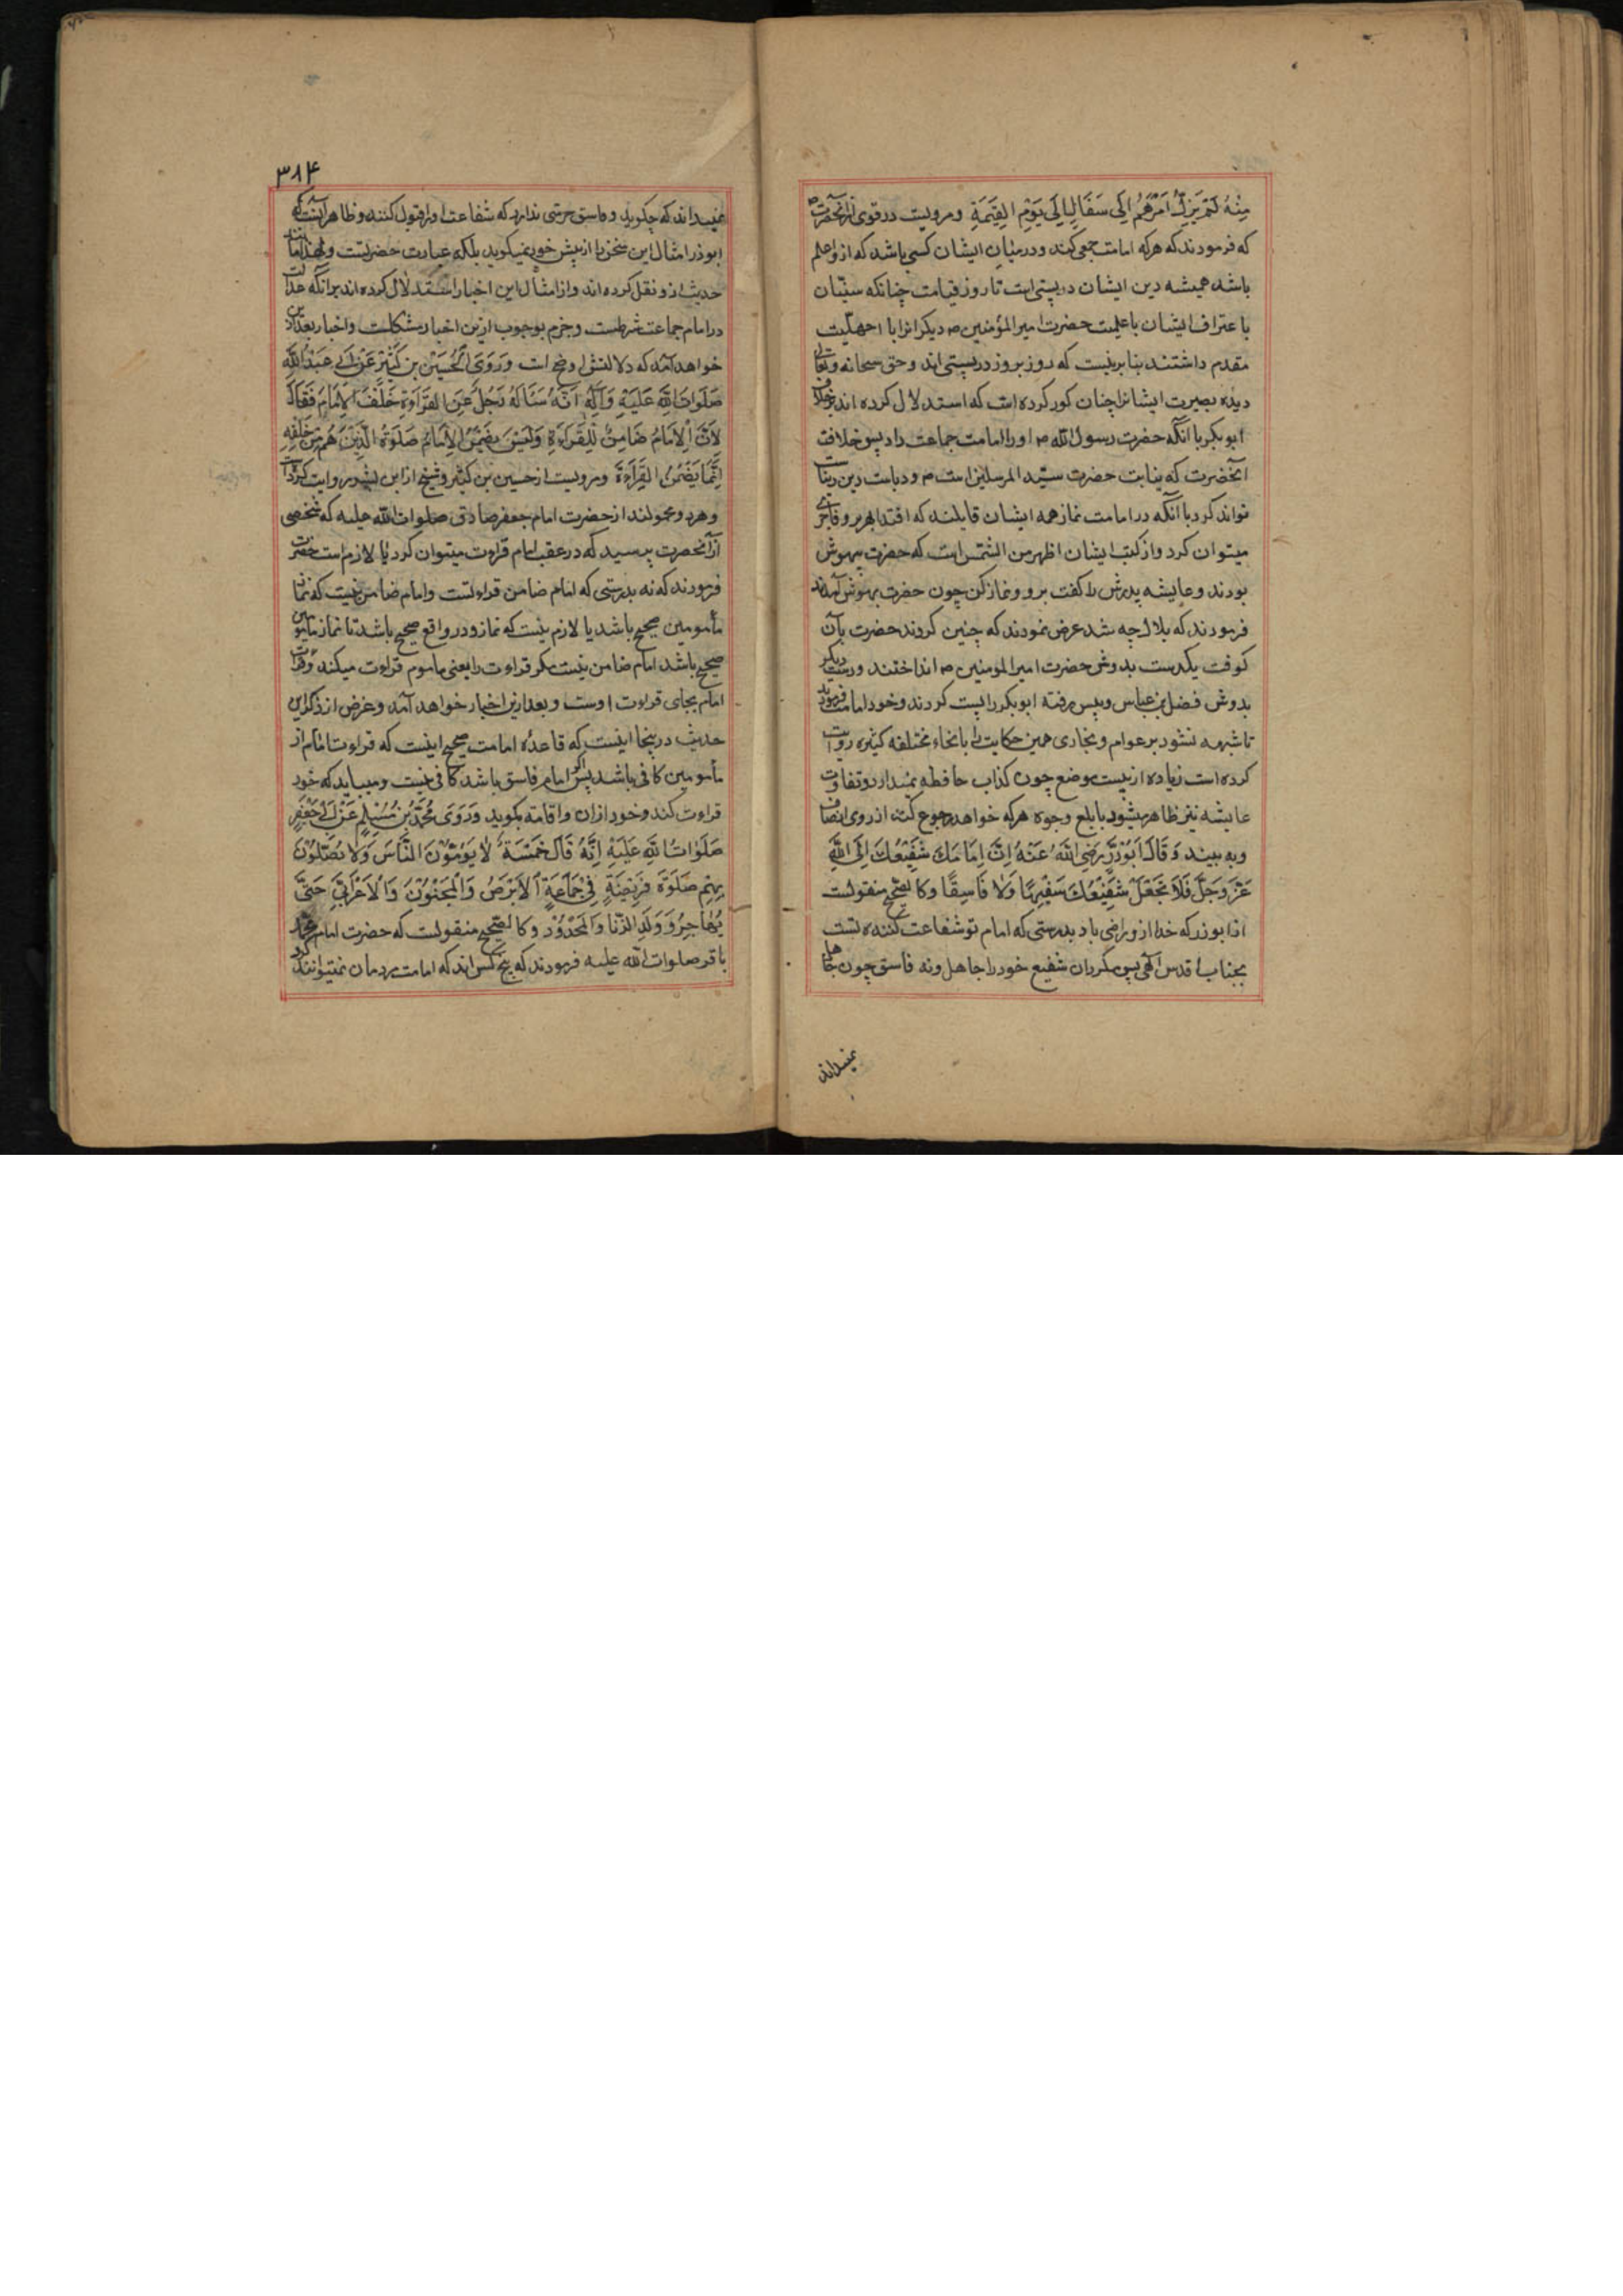 مِنْهُ لَمْ يَزَلْ اَمْرُهُمْ اِلَى سَفَالٍ اِلَى يَوْمِ الْقِيٰمَةِ ومرویست در قوی از آنحضرت ص
که فرمودند که هر که امامت جمعی کند و در میان ایشان کسی باشد که ازو اعلم
باشد همیشه دین ایشان در پستی است تا روز قیامت چنانکه سنّیان
با عتراف ایشان باعلمیت حضرت امیر المؤمنین ص دیکرانرا با اجهلیت
مقدم داشتند بنا برینست که روز بروز در پستی اند و حق سبحانه وتعالی
دیده بصیرت ایشانرا چنان کور کرده است که استدلال کرده اند بر خلافت
ابو بکر با آنکه حضرت رسول الله ص او را امامت جماعت داد پس خلافت
آنحضرت که نیابت حضرت سیّد المرسلین است ص و
تواند کرد با آنکه در امامت نماز همه ایشان قایلند که اقتدا بهر بر و فاجری
میتوان کرد و از کتب ایشان اظهر من الشمس است که حضرت بیهوش
بودند و عایشه پدرش را کفت برو و نماز کن چون حضرت بهوش آمدند
فرمودند که بلال چه شد عرض نمودند که چنین کردند حضرت بآن
کوفت یکدست بدوش حضرت امیر المومنین ص انداختند و دست دیکر
بدوش فضل بن عباس و پیش رفته ابو بکر را پست کردند و خود امامت فرمودند
تا شبهه نشود بر عوام و بخاری همین حکایت را بانحاء مختلفه کثیره روایت
کرده است زیاده از بیست موضع چون کذاب حافظه نمیدارد و تفاوت
عایشه نیز ظاهر میشود بابلغ وجوه هر که خواهد رجوع کند از روی انصاف
وبه بیند وَقَالَ اَبُوْذَرٍّ رَضِىَ اللّٰهُ عَنْهُ اِنَّ اِمَامَكَ شَفِيْعُكَ اِلَى اللّٰهِ
عَزَّ وَجَلَّ فَلَا تَجْعَلْ شَفِيْعَكَ سَفِيْهًا وَلَا فَاسِقًا وکالصحیح منقولست
از ابوذر که خدا ازو راضی باد بدرستی که امام تو شفاعت کننده تست
بجناب اقدس الهی پس مکردان شفیع خود را جاهل و نه فاسق چون جاهل
نمیداند
۳۸۴
نمیداند که چکوید و فاسق حرمتی ندارد که شفاعت او را قبول کنند و ظاهر آنست که
ابوذر امثال این سخن را از پیش خود نمیکوید بلکه عبارت حضرتست و لهذا
حدیث ازو نقل کرده اند و از امثال این اخبار استدلال کرده اند بر آنکه عدالت
در امام جماعت شرطست و جزم بوجوب ازین اخبار مشکلست و اخبار بعد ازین
خواهد آمد که دلالتش اوضح است وَرَوَى الْحُسَيْنُ بْنُ كَثِيْرٍ عَنْ اَبِى عَبْدِ اللّٰهِ
صَلَوَاتُ اللّٰهِ عَلَيْهِ وَآلِهٖ اَنَّهُ سَئَالَهُ رَجُلٌ عَنِ الْقِرَاءَةِ خَلْفَ الْاِمَامِ فَقَالَ
لَا اِنَّ الْاِمَامَ ضَامِنٌ لِلْقِرَاءَةِ وَلَيْسَ يَضْمَنُ الْاِمَامُ صَلٰوةَ الَّذِيْنَ هُمْ مِنْ خَلْفِهِ
اِنَّمَا يَضْمَنُ الْقِرَاءَةَ ومرویست از حسین بن کثیر و شیخ از ابن بشیر روایت کرده است
وهر دو مجهولند از حضرت امام جعفر صادق صلوات الله علیه که شخصی
از آنحضرت پرسید که در عقب امام قراءت میتوان کرد یا لازم است حضرت
فرمودند که نه بدرستی که امام ضامن قراءتست و امام ضامن نیست که نماز
مأمومین صحیح باشد یا لازم نیست که نماز او در واقع صحیح باشد تا نماز مأمومین
صحیح باشد امام ضامن نیست مکر قراءت را یعنی ماموم قراءت میکند و قراءت
امام بجای قراءت اوست و بعد ازین اخبار خواهد آمد و غرض از ذکر این
حدیث در ینجا اینست که قاعده امامت صحیح اینست که قراءت امام از
مأمومین کافی باشد پس اکر امام فاسق باشد کافی نیست و میباید که خود
قراءت کند و خود اذان و اقامه بکوید وَرَوَى مُحَمَّدُ بْنُ مُسْلِمٍ عَنْ اَبِى جَعْفَرٍ
صَلَوَاتُ اللّٰهِ عَلَيْهِ اِنَّهُ قَالَ خَمْسَةٌ لَا يَؤُمُّوْنَ النَّاسَ وَلَا يُصَلُّوْنَ
بِهِمْ صَلٰوةً فَرِيْضَةٍ فِىْ جَمَاعَةٍ اَلْاَبْرَصُ وَالْمَجْنُوْنُ وَالْاَعْرَابِىُّ حَتَّى
يُهَاجِرُ وَوَلَدِ الزِّنَا وَالْمَحْدُوْدِ وکالصحیح منقولست که حضرت امام محمد
باقر صلوات الله علیه فرمودند که پنج کس اند که امامت مردمان نمیتوانند کرد